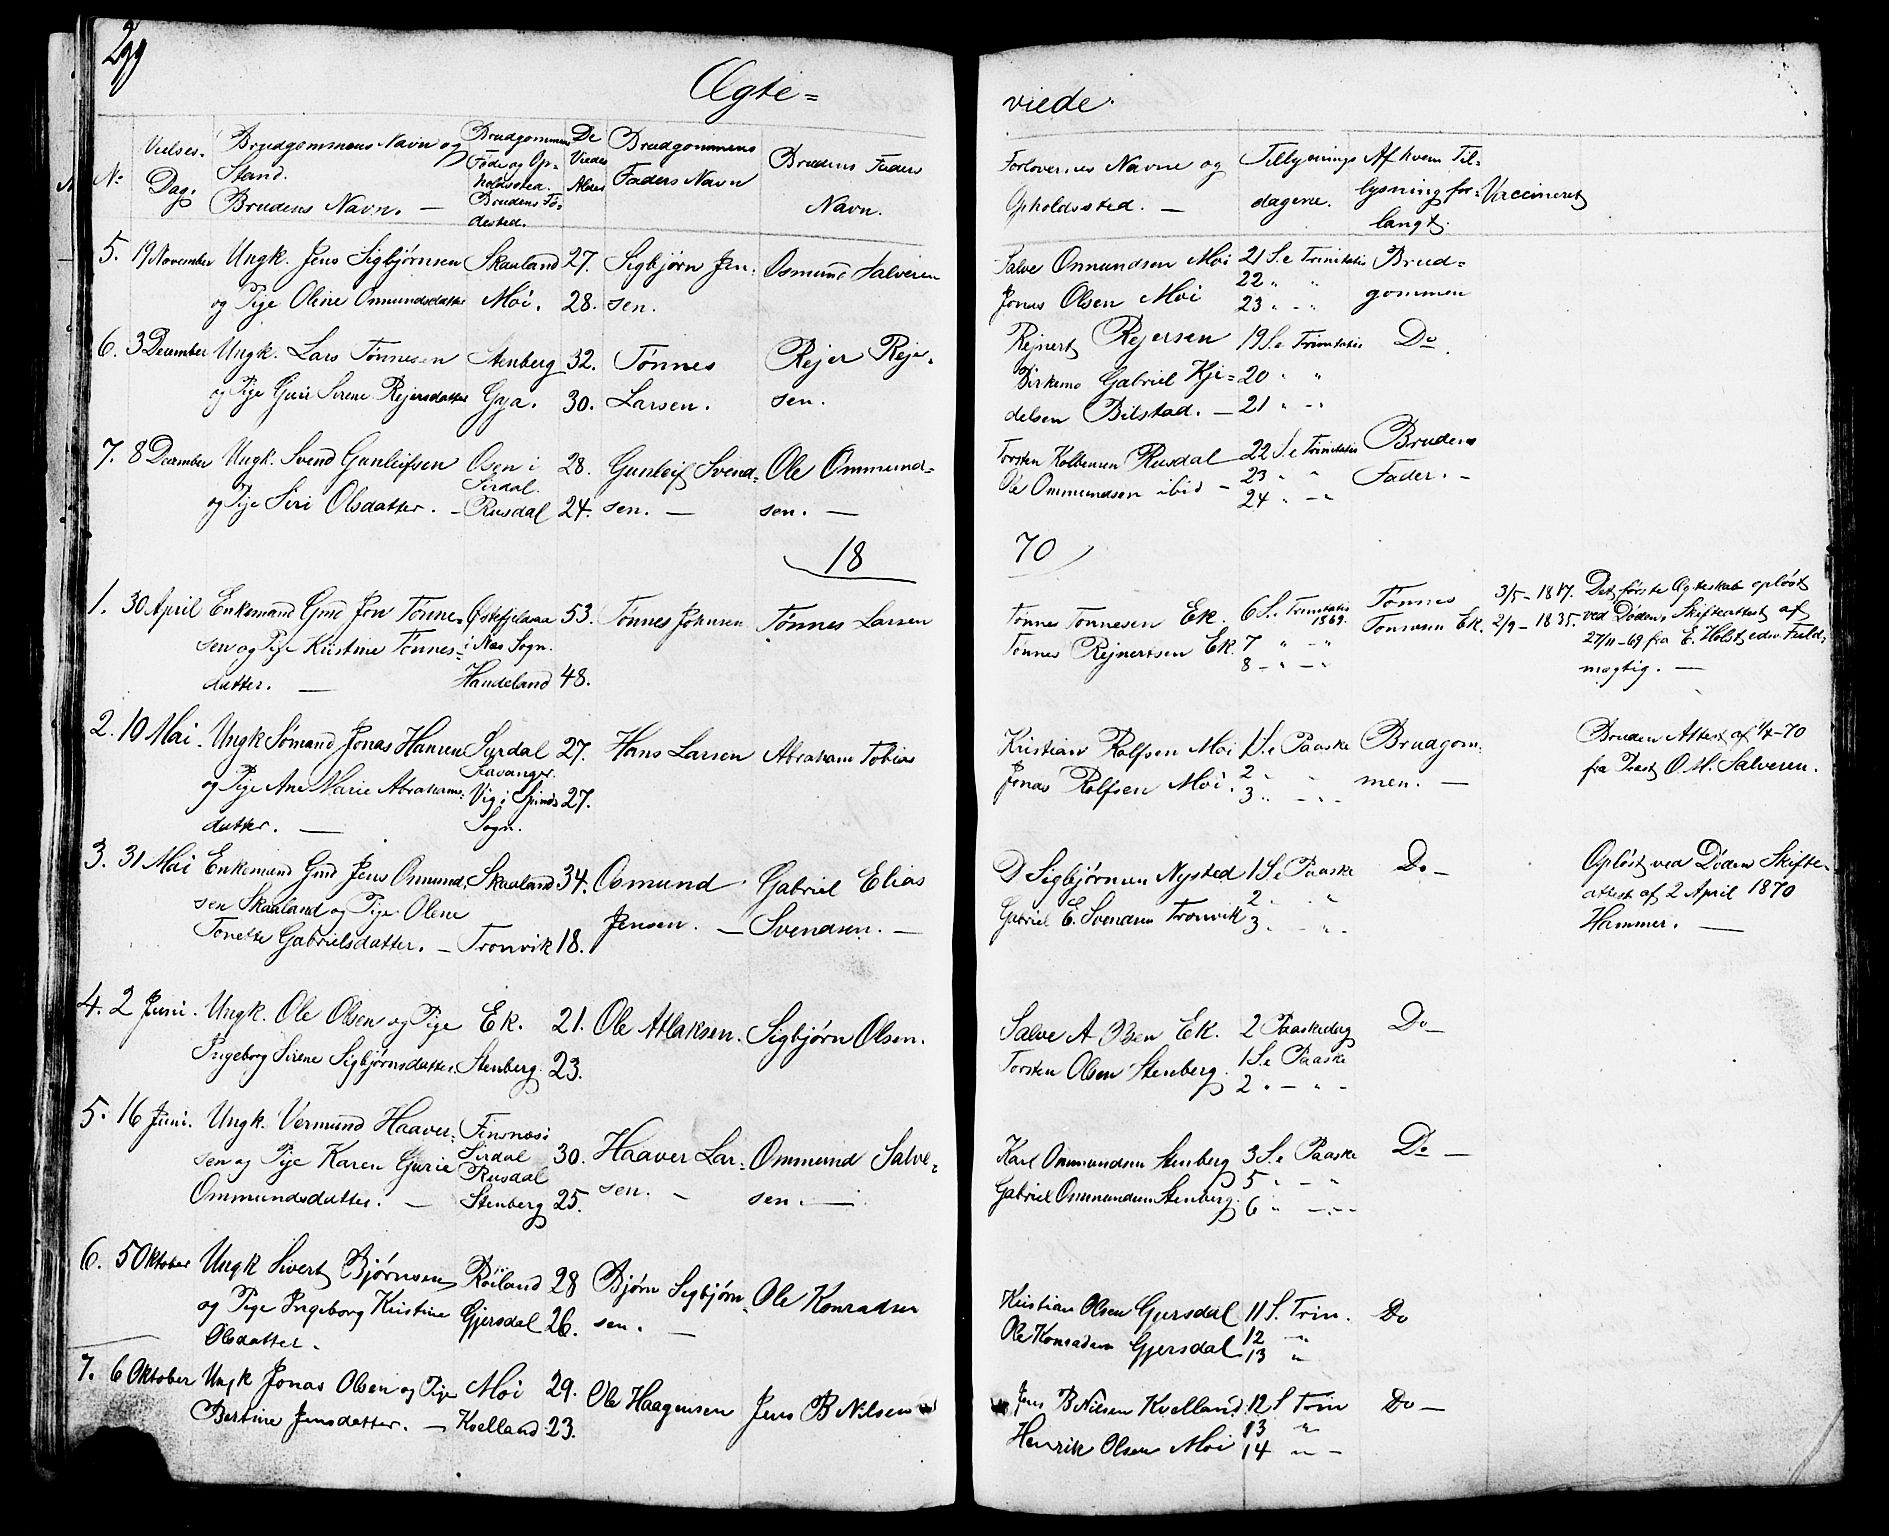 299
Ægte=
viede.
No
Vielses-
Dag.
Brudgommens Navn og
Stand.
Brudens Navn. —
Brudgommens
Føde og Op-
holdssted.
Brudens Fø-
dested.
De
Viedes
Alder
Brudgommens
Faders Navn
Brudens Faders
Navn.
Forlovernes Navne og
Opholdssted. —
Tillysnings
dagene.
Af hvem Til-
lysning for-
langt.
Vaccineret
5. 19 November Ungk. Jens Sigbjørnsen Skaaland 27. Sigbjørn Jen- Osmund Salvesen
og Pige Oline Osmundsdatter Moi. 28. sen.
Salve Osmundsen Moi 21 S. e Trinitatis Brud=
22 " "
Jonas Olsen Moi 23 " - " gommen
6. 3 December Ungk. Lars Tønnesen Stenberg 32. Tønnes Rejer Reje-
og Pige Guri Sirene Rejersdatter Gya. 30. Larsen. sen.
Rejnert Rejersen 19 S. e Trinitatis Do.
Birkemo Gabriel Kje= 20 " "
delsen Bilstad. — 21 " - "
7. 8 December Ungk. Svend Gunleifsen Osen i 28. Gunleif Svend- Ole Ommund=
Sirdal.
og Pige Siri Olsdatter. — Rusdal 24. sen. — sen. —
Torsten Rusdal — 22 S. e Trinitatis Brudens
23 " "
Ole Ommundsen ibid — 24 " - " Fader. -
18
70
1. 30 April Enkemand Gmd Jon Tønne= 53. Tønnes Johnsen Tønnes Larsen
sen og Pige Kristine Tønnes= i Næs Sogn.
datter. — Haudeland 48.
Tønnes Tønnesen Ek. 6 S. e Trinitatis
1869.
Tønnes Rejnertsen Ek. 7 " - "
8 - " - "
Tønnes
Tønnesen Ek.
3/5 - 1817.
2/9 - 1835.
Det første Ægteskab opløst
ved Døden, Skifteattest af
27/11-69 fra E. Holst, edsv. Fuld-
mægtig. —
2. 10 Mai. Ungk Sømand Jonas Hansen Syrdal 27. Hans Larsen Abraham Tobias
Stavanger.
og Pige Ane Marie Abrahams- Vig i Spinds 27.
datter. — Sogn.
Kristian Rolfsen Moi 1 S. e Paaske Brudgom-
2 " "
Jonas Rolfsen Moi. 3 " - " - men. —
Bruden Attest af 1/4-70
fra Præst O. M. Salvesen.
3. 31 Mai Enkemand Gmd Jens Osmund- Skaaland 34. Osmund Gabriel Elias
sen Skaaland og Pige Olene
Tonette Gabrielsdatter. — Tronvik 18. Jensen. — Svendsen. —
D Sigbjørnsen Nysted 1 S. e Paaske Do —
2 " "
Gabriel E. Svendsen Tronvik 3 " - " -
Opløst ved Døden Skifte-
attest af 2 April 1870
Hammer. —
4. 2 Juni. Ungk. Ole Olsen og Pige Ek. 21. Ole Atlaksen. Sigbjørn Olsen.
Ingeborg Sirene Sigbjørnsdatter. Stenberg. 23.
Salve A Olsen Ek. 2 Paaskedag Do —
Torsten Olsen Stenberg. 1 S. e Paaske
2 " - " -
5. 16 Juni. Ungk. Vermund Haaver- Finsnæs i
Sirdal
sen og Pige Karen Gurie Rusdal 30. Haaver Lar- Ommund Salve-
Ommundsdatter. — Stenberg 25. sen. — sen. —
Karl Ommundsen Stenberg 3 S. e Paaske Do —
5 " - "
Gabriel Ommundsen Stenberg. 6 " - " -
6. 5 Oktober Ungk Sivert Bjørnsen Röiland 28 Bjørn Sigbjørn- Ole Konradsen
og Pige Ingeborg Kristine Gjersdal 26. sen. —
Olsdatter.
Kristian Olsen Gjersdal 11 S. Trin. Do
12 - "
Ole Konradsen Gjersdal 13 "
7. 6 Oktober Ungk Jonas Olsen og Pige Moi 29. Ole Haagensen Jens B Nilsen
Bertine Jensdatter. — Kvelland 23.
Jens B Nilsen Kvelland. 12 S Trin Do —
13 "
Henrik Olsen Moi 14 " -